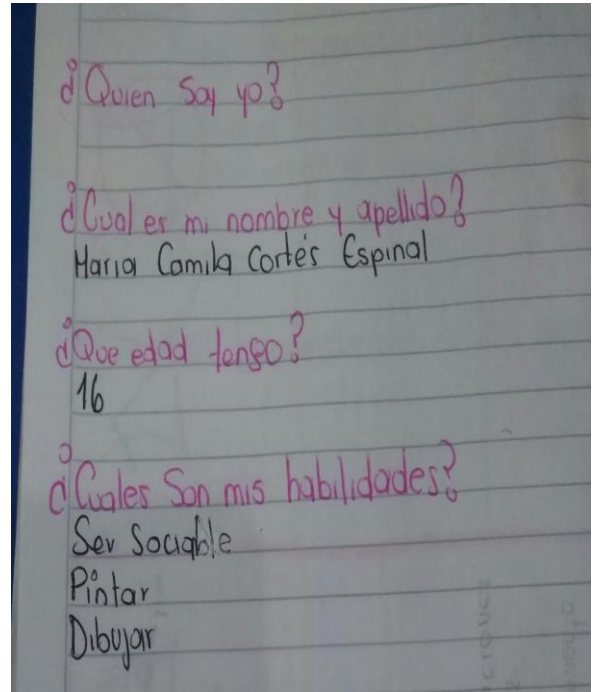 ¿Quien Soy yo?
¿Cual es mi nombre y apellido?
Maria Camila Cortés Espinal
¿Que edad tengo?
16
¿Cuales Son mis habilidades?
Ser Sociable
Pintar
Dibujar